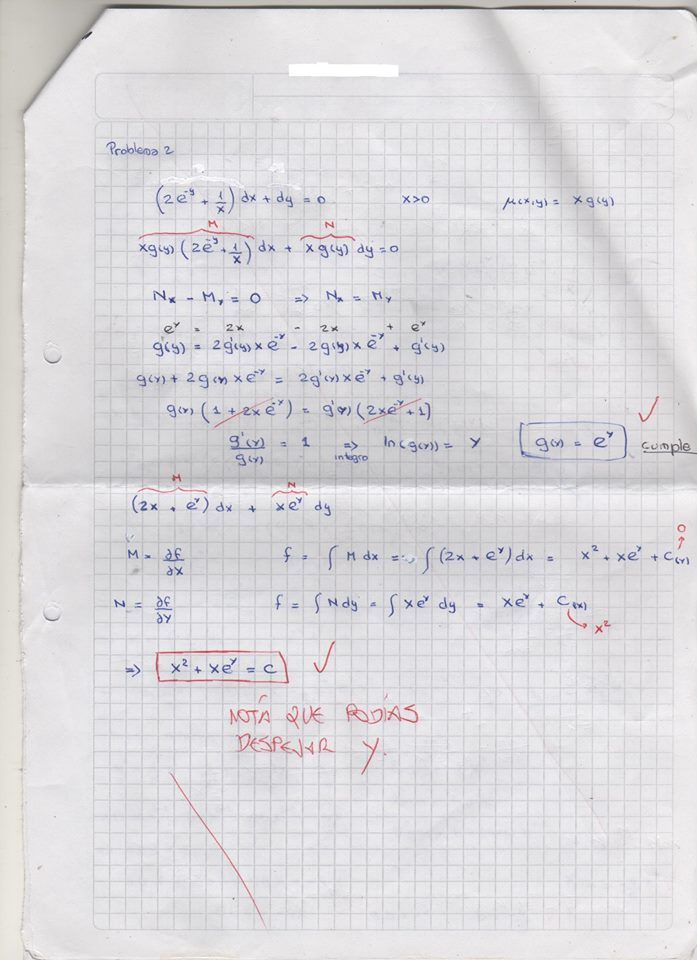 Problema 2
(2e^-y + 1/x) dx + dy = 0    x>0    μ(x,y) = x g(y)
M    N
x g(y) (2e^-y + 1/x) dx + x g(y) dy = 0
Nx - My = 0 => Nx = My
e^y = 2x - 2x + e^y
g(y) = 2g'(y) x e^-y - 2g(y) x e^-y + g'(y)
g(y) + 2g(y) x e^-y = 2g'(y) x e^-y + g'(y)
g(y) (1 + 2x e^-y) = g'(y) (2x e^-y + 1)
g'(y)/g(y) = 1 => integro ln(g(y)) = y    g(y) = e^y    cumple
M    N
(2x + e^y) dx + x e^y dy
0
M = ∂f/∂x    f = ∫ M dx = ∫ (2x + e^y) dx = x² + x e^y + C(y)
N = ∂f/∂y    f = ∫ N dy = ∫ x e^y dy = x e^y + C(x)
x²
=> x² + x e^y = C
NOTÁ QUE PODÍAS
DESPEJAR y.